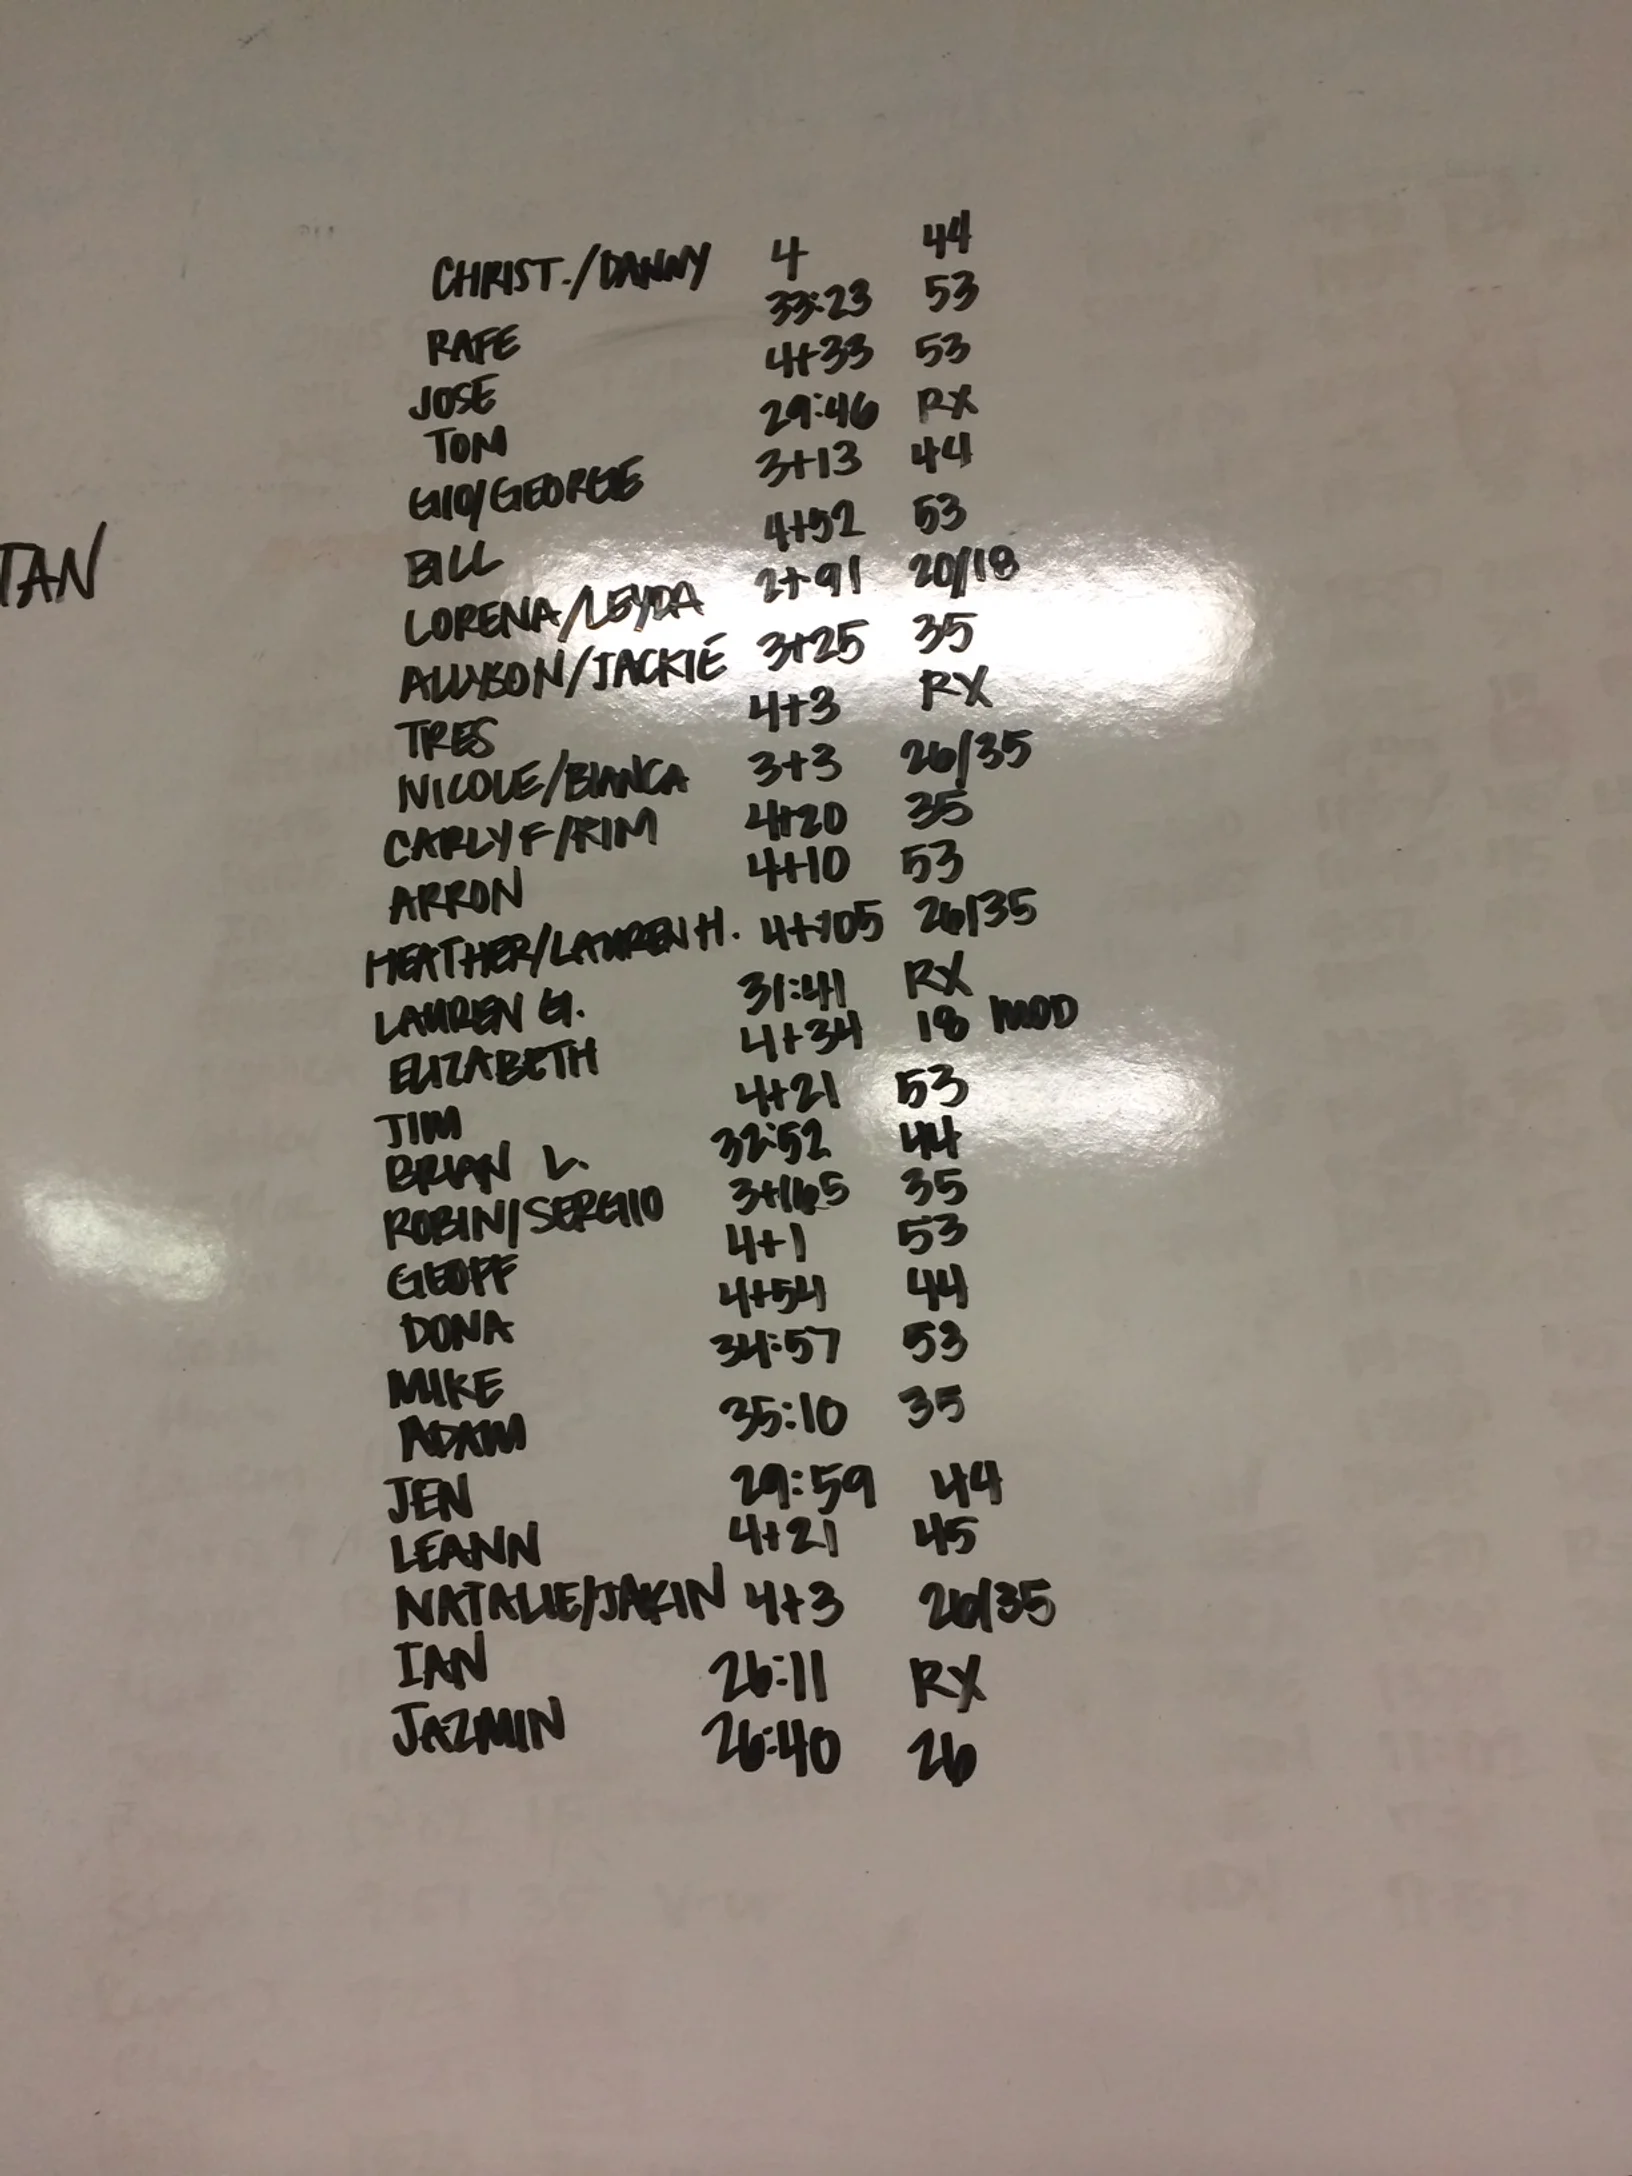 CHRIST./DANNY 4 44
RAFE 33:23 53
JOSE 4+33 53
TOM 29:46 RX
GIO/GEORGE 3+13 44
BILL 4+52 53
TAN
LORENA/LEYDA 2+91 20/18
ALLYSON/JACKIE 3+25 35
TRES 4+3 RX
NICOLE/BIANCA 3+3 26/35
CARLY F/KIM 4+20 35
ARRON 4+10 53
HEATHER/LAUREN H. 4+105 26/35
LAUREN G. 31:41 RX
ELIZABETH 4+34 18 MOD
JIM 4+21 53
BRIAN L. 32:52 44
ROBIN/SERGIO 3+165 35
GEOFF 4+1 53
DONA 4+54 44
MIKE 34:57 53
ADAM 35:10 35
JEN 29:59 44
LEANN 4+21 45
NATALIE/JAKIN 4+3 26/35
IAN 26:11 RX
JAZMIN 26:40 26